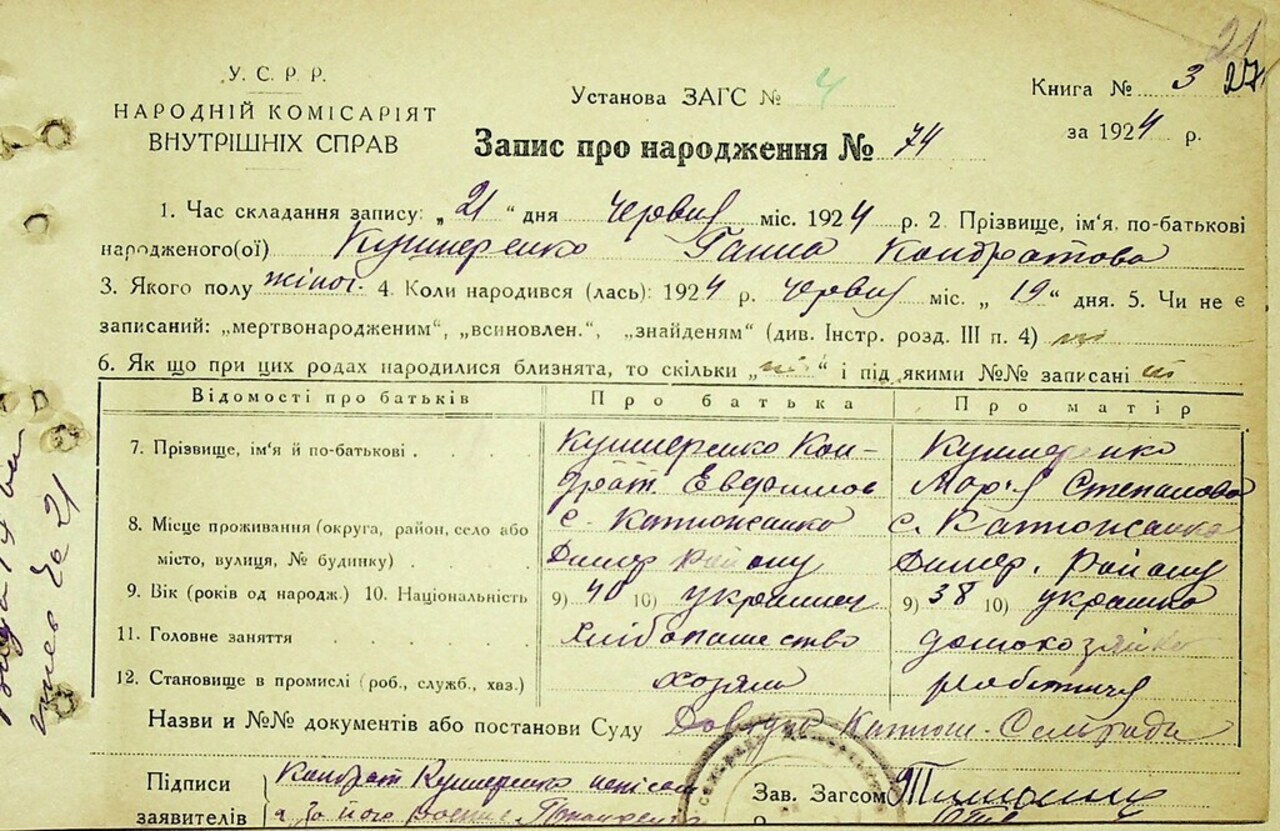 21
У. С. Р. Р.
НАРОДНІЙ КОМІСАРІЯТ
ВНУТРІШНІХ СПРАВ
Установа ЗАГС № 4
Книга № 3 27
за 1924 р.
Запис про народження № 74
1. Час складання запису: „ 21 “ дня червня міс. 1924 р. 2. Прізвище, ім‘я, по-батькові
народженого(ої) Кушнеренко Ганна Кондратова
3. Якого полу жіноч. 4. Коли народився (лась): 1924 р. червня міс. „ 19 “ дня. 5. Чи не є
записаний: „мертвонародженим“, „всиновлен.“, „знайденям“ (див. Інстр. розд. III п. 4) ні
6. Як що при цих родах народилися близнята, то скільки „ ні “ і під якими №№ записані ні
Відомості про батьків Про батька Про матір
7. Прізвище, ім‘я й по-батькові Кушнеренко Кон- Кушнеренко
драт Евфимов Мар‘я Степанова
8. Місце проживання (округа, район, село або с. Катюжанка с. Катюжанка
місто, вулиця, № будинку) Димер району Димер. району
9. Вік (років од народж.) 10. Національність 9) 40 10) українец 9) 38 10) українка
11. Головне заняття хлібопашество домохозяйка
12. Становище в промислі (роб., служб., хаз.) хозяин робітниця
Назви и №№ документів або постанови Суду Довідка Катюж. Сельради
Підписи Кондрат Кушнеренко Зав. Загсом
заявителів а за його